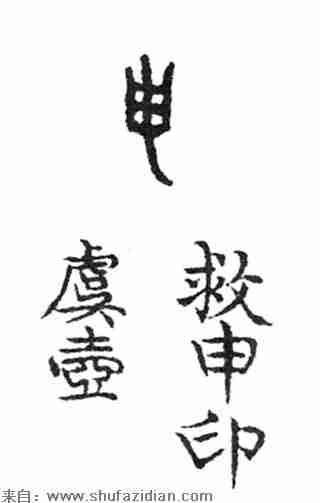 申
救申印
虞壺
来自：www.shufazidian.com